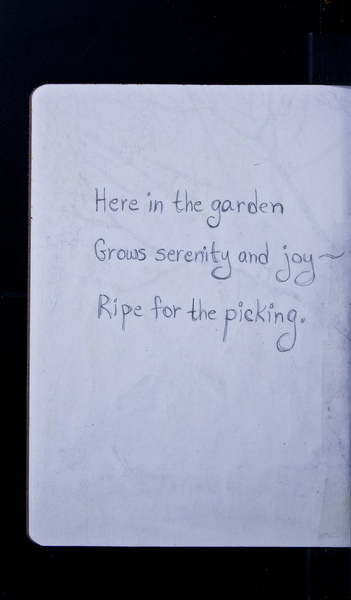 Here in the garden
Grows serenity and joy~
Ripe for the picking.